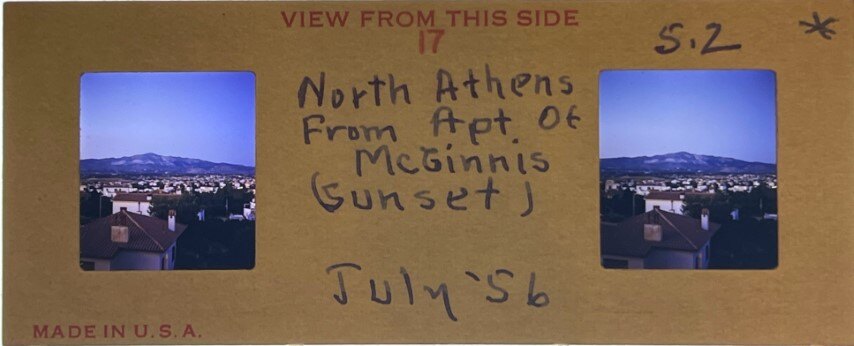 VIEW FROM THIS SIDE
17
5.2 *
North Athens
From Apt. Of
McGinnis
(Sunset)
July '56
MADE IN U.S.A.